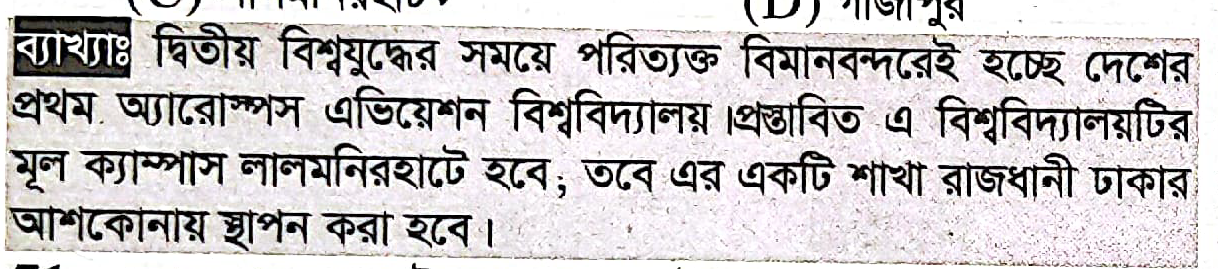 (D) গাজীপুর
ব্যাখ্যাঃ দ্বিতীয় বিশ্বযুদ্ধের সময়ে পরিত্যক্ত বিমানবন্দরেই হচ্ছে দেশের
প্রথম অ্যারোস্পস এভিয়েশন বিশ্ববিদ্যালয় ।প্রস্তাবিত এ বিশ্ববিদ্যালয়টির
মূল ক্যাম্পাস লালমনিরহাটে হবে; তবে এর একটি শাখা রাজধানী ঢাকার
আশকোনায় স্থাপন করা হবে।